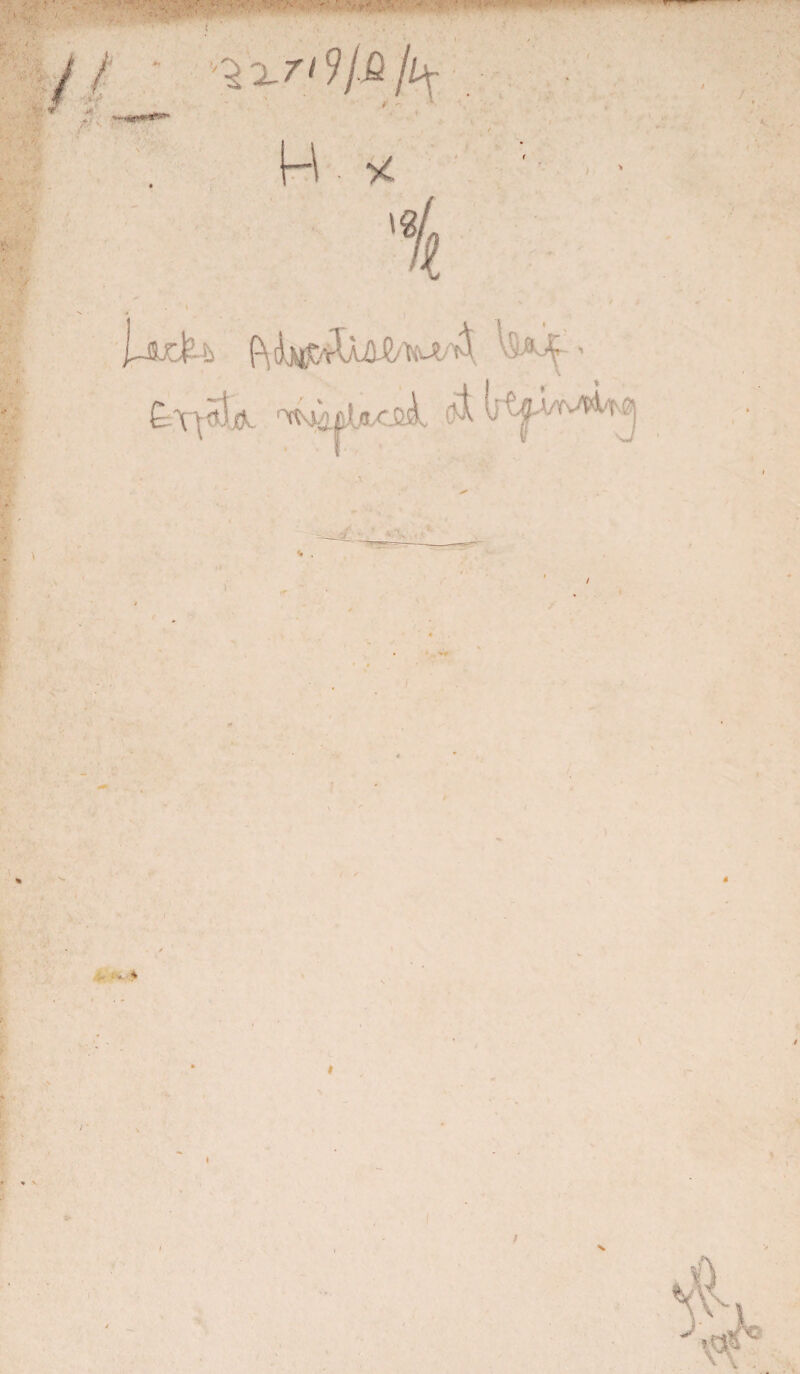 11_ 32719/A/4
H. x
18/
Lacks Advertisement leaf.
Errata misplaced at beginning
JR
1906